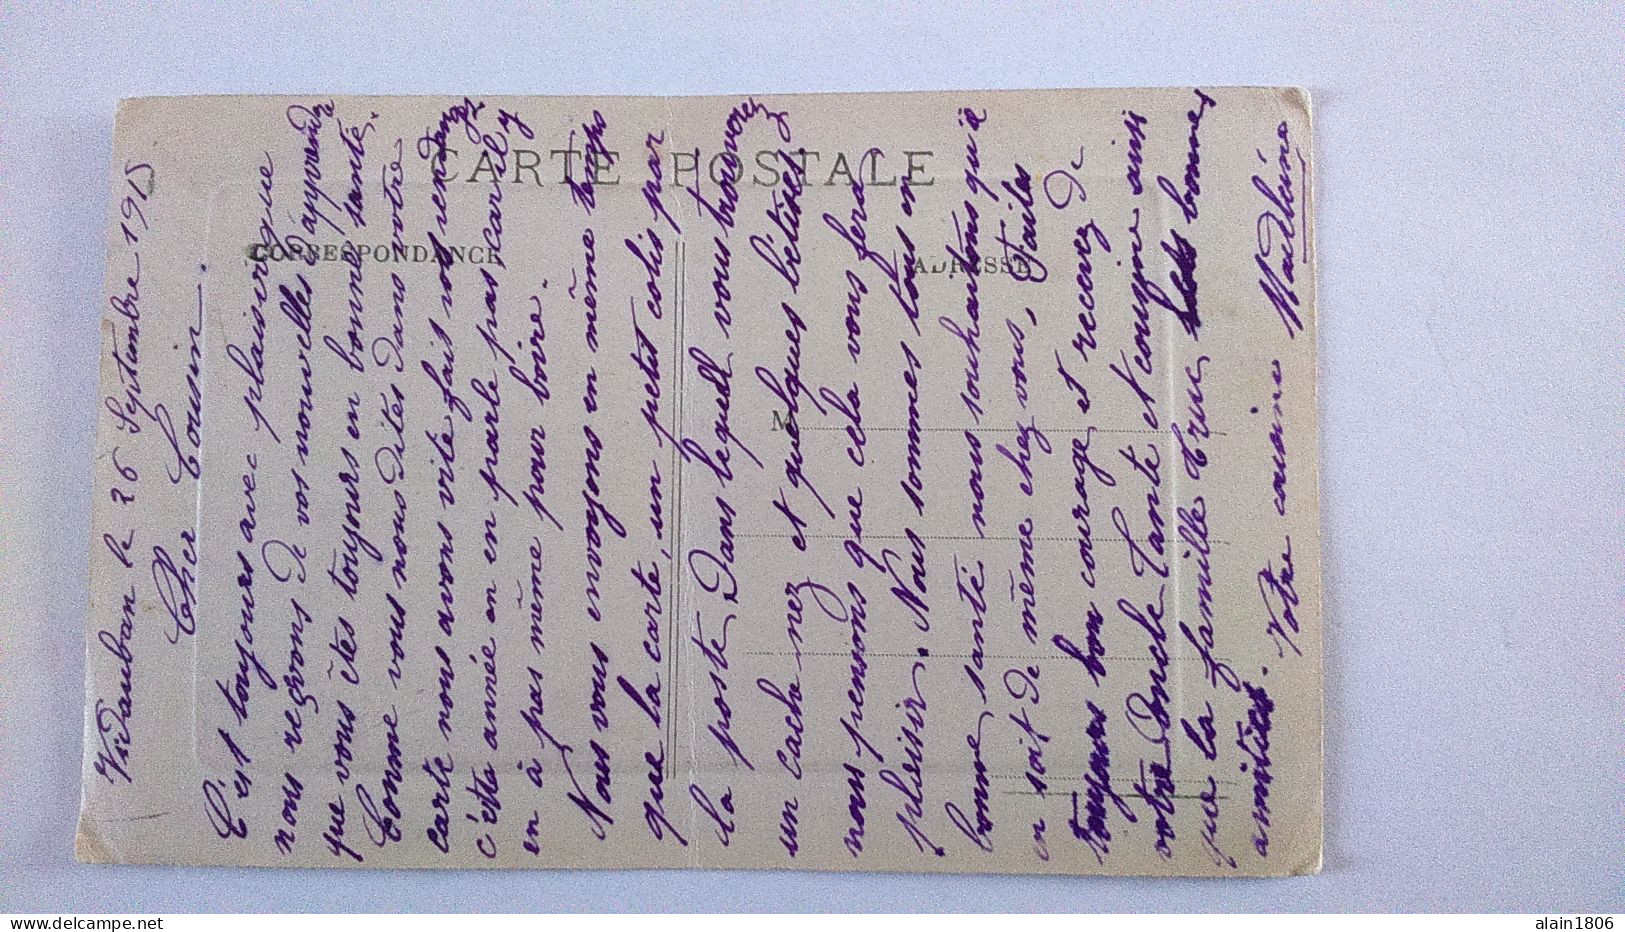 CARTE POSTALE
CORRESPONDANCE
ADRESSE
M
Vidauban le 26 Septembre 1915
Cher Cousin
C'est toujours avec plaisir que
nous reçvons de vos nouvelles d'apprendre
que vous êtes toujours en bonne santé.
Comme vous nous dites dans votre
carte nous avons vite fait nos vendanges
c'ete année on en parle pas car il y
en à pas même pour boire.
Nous vous envoyons en même temps
que la carte, un petit colis par
la poste, Dans lequell vous trouverez
un cache nez et quelques bêtises
nous pensons que cela vous fera
plaisir. Nous sommes tous en
bonne santé nous souhaitons qu'il
en soit de même chez vous, Faites
toujours bon courage et recevez de
votre Oncle Tante et cousine ainsi
que la famille Truc, les bonnes
amitiés. Votre cousine Madleine
alain1806